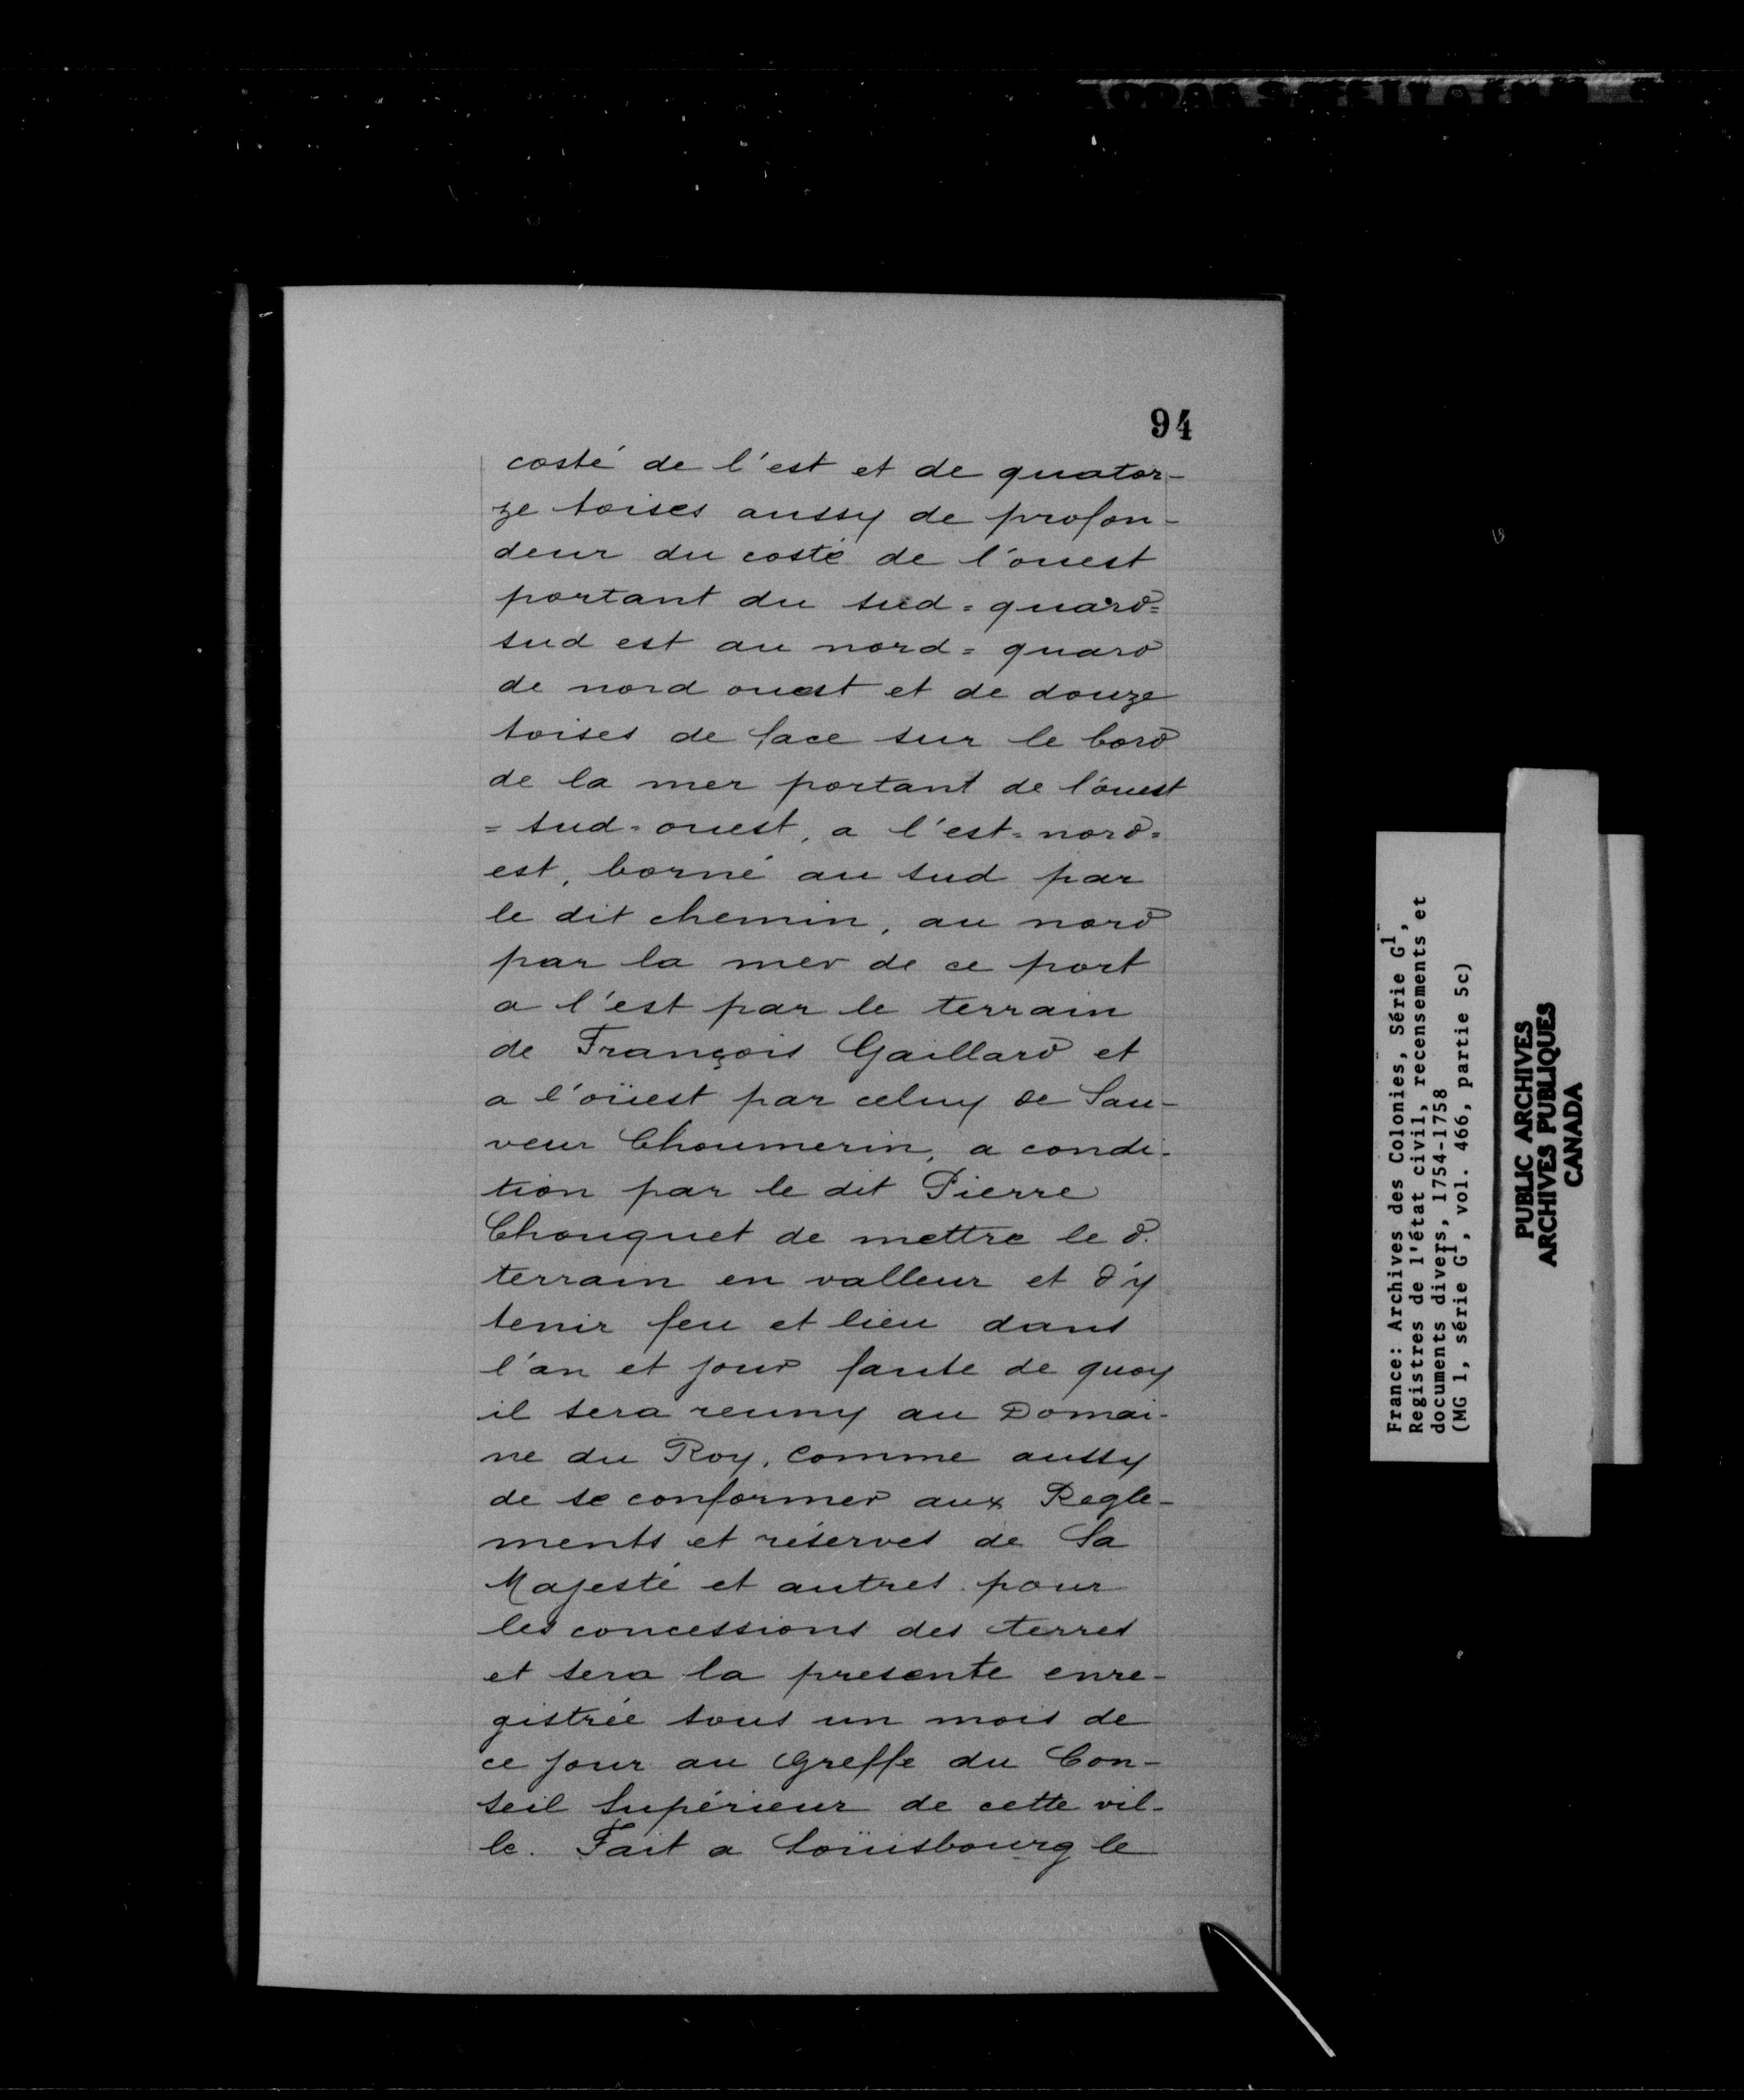 94
costé de l'est et de quator-
ze toises aussy de profon-
deur du costé de l'ouest
portant du sud=quard=
sud est au nord=quard
de nord ouest et de douze
toises de face sur le bord
de la mer portant de l'ouest
=sud=ouest, a l'est=nord=
est, borné au sud par
le dit chemin, au nord
par la mer de ce port
a l'est par le terrain
de François Gaillard et
a l'oüest par celuy de Sau-
veur Choumerin, a condi-
tion par le dit Pierre
Chouquet de mettre le d.
terrain en valleur et d'y
tenir feu et lieu dans
l'an et jour faute de quoy
il sera reuny au Domai-
ne du Roy, comme aussy
de se conformer aux Regle-
ments et réserves de Sa
Majesté et autres pour
les concessions des terres
et sera la presente enre-
gistrée sous un mois de
ce jour au Greffe du Con-
seil Supérieur de cette vil-
le. Fait a Loüisbourg le
France: Archives des Colonies, Série G1,
Registres de l'état civil, recensements et
documents divers, 1754-1758
(MG 1, série G1, vol. 466, partie 5c)
PUBLIC ARCHIVES
ARCHIVES PUBLIQUES
CANADA